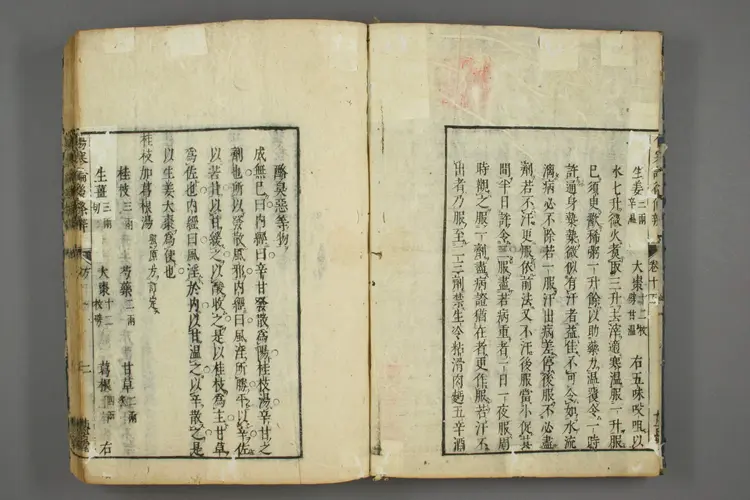 生姜二兩辛溫 大棗十二枚擘甘溫 右五味㕮咀以
水七升微火煮取三升去滓適寒溫服一升服
已須更歠稀粥一升餘以助藥力溫覆令一時
許通身漐漐微似有汗者益佳不可令如水流
漓病必不除若一服汗出病差停後服不必盡
劑若不汗更服依前法又不汗後服當小促其
間半日許令三服盡若病重者一日一夜服周
時觀之服一劑盡病證猶在者更作服若汗不
出者乃服至二三劑禁生冷粘滑肉麪五辛酒
卷十三
酪臭惡等物
成無己曰內經曰辛甘發散爲陽桂枝湯辛甘之
劑也所以發散風邪內經曰風淫所勝平以辛佐
以苦甘以甘緩之以酸收之是以桂枝爲主甘草
爲佐也內經曰風淫於內以甘溫之以辛散之是
以生姜大棗爲使也
桂枝加葛根湯
桂枝三兩 芍藥二兩 甘草二兩
生薑三兩切 大棗十二枚擘 葛根四兩 右